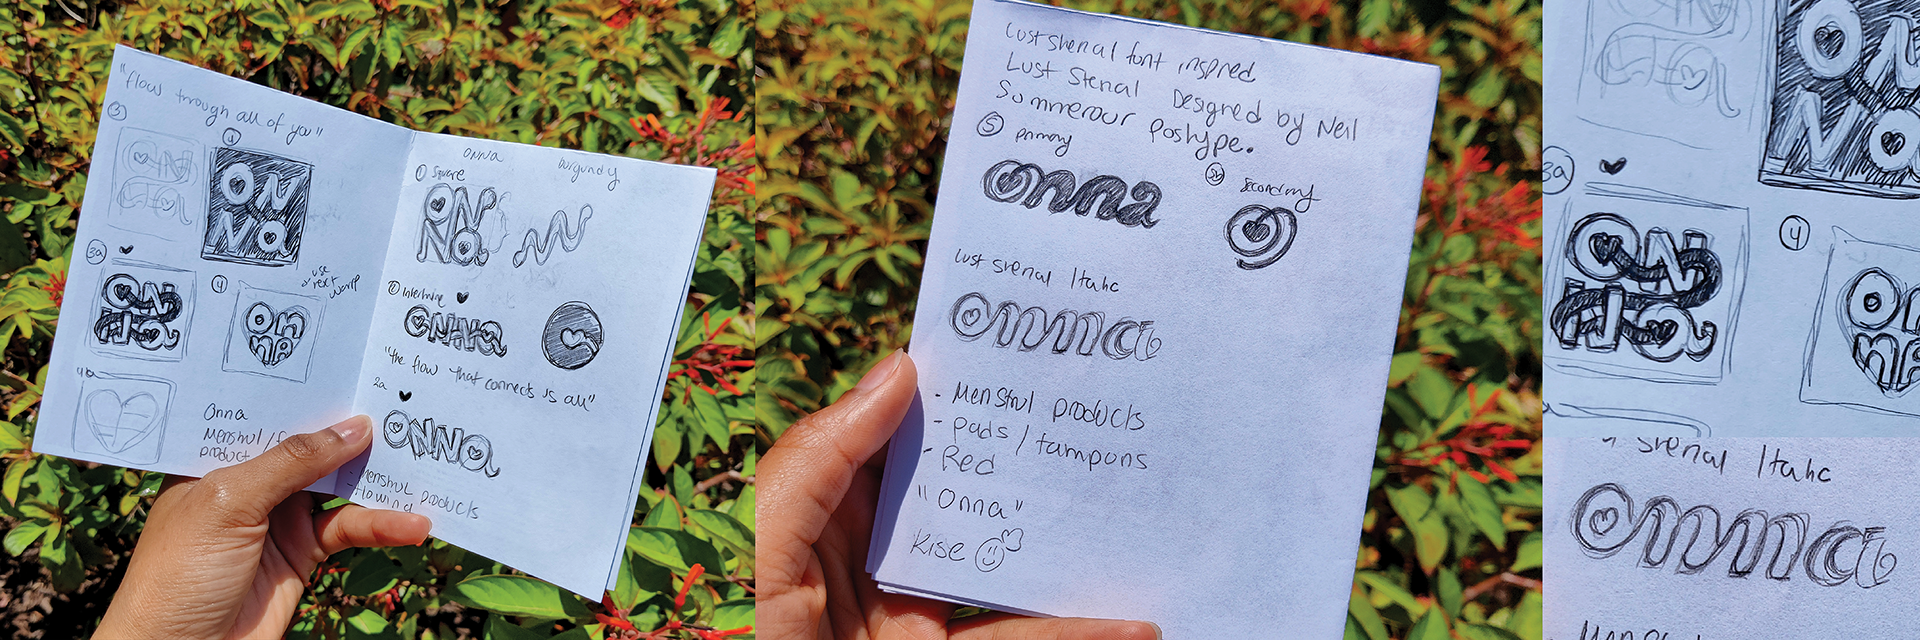 "flow through all of you"
3
4
ON
NA
3a
ON
Na
4
use
text
warp
On
nA
4a
Onna
Menstrul /
product
Onna
burgundy
1 Square
ON
Na
2 Intertwine
ONNA
"the flow that connects us all"
2a
ONNa
- Menstrul products
- flowing
Lust Stencal font inspired
Lust Stencal Designed by Neil
Summerour Postype.
5 primary
onna
5a secondary
Lust Stencal Italic
onna
- Menstrul products
- pads / tampons
- Red
"Onna"
Kise
ON
Na
3a
ON
Na
4
On
nA
Stencal Italic
onna